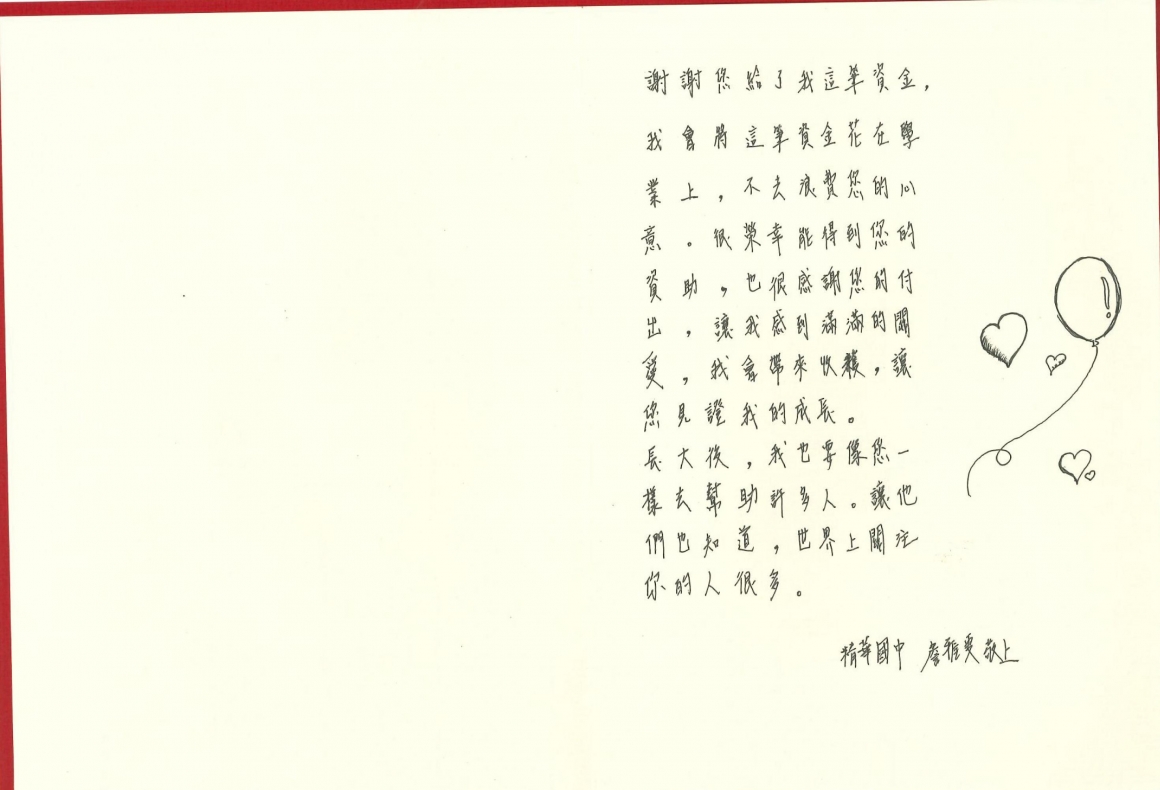 謝謝您給了我這筆資金,
我會將這筆資金花在學
業上,不去浪費您的心
意。很榮幸能得到您的
資助,也很感謝您的付
出,讓我感到滿滿的關
愛,我會帶來收穫,讓
您見證我的成長。
長大後,我也要像您一
樣去幫助許多人。讓他
們也知道,世界上關注
你的人很多。
精華國中 詹雅雯敬上